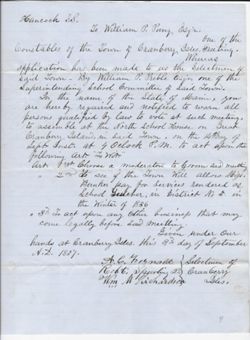 Hancock SS.
To William P. Preble, Esqr.
One of the
Constables of the Town of Cranberry Isles, Greeting.
Whereas
application has been made to us the Selectmen of
Said Town. By William P. Preble Esqr. one of the
Superintending School Committee of Said Town.
In the name of the State of Maine, you
are hereby required and notified to warn all
persons qualified by law to vote at such meeting,
to assemble at the North School house, on Great
Cranberry Island, in said Town, on the
Sept. Inst. at 4 O,clock P.M. to act upon the
following Art. To Wit.
Art 1st To Choose a moderator to Govern said meeting
" 2nd To see if the Town will allow
pay for Services rendered as
School Teacher, in District No. 2 in
the Winter of 1856
" 3d To act upon any other business that may
come legally before Said meeting
Given under Our
hands at Cranberry Isles. this 9th day of September
A.D. 1857.
Selectmen
of Cranberry
Wm. Richardson Isles.